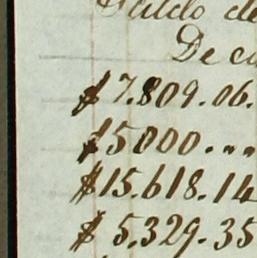 Saldo de
De
$ 7.809.06.
$ 5000. " "
$ 15.618.14
$ 5.329.35